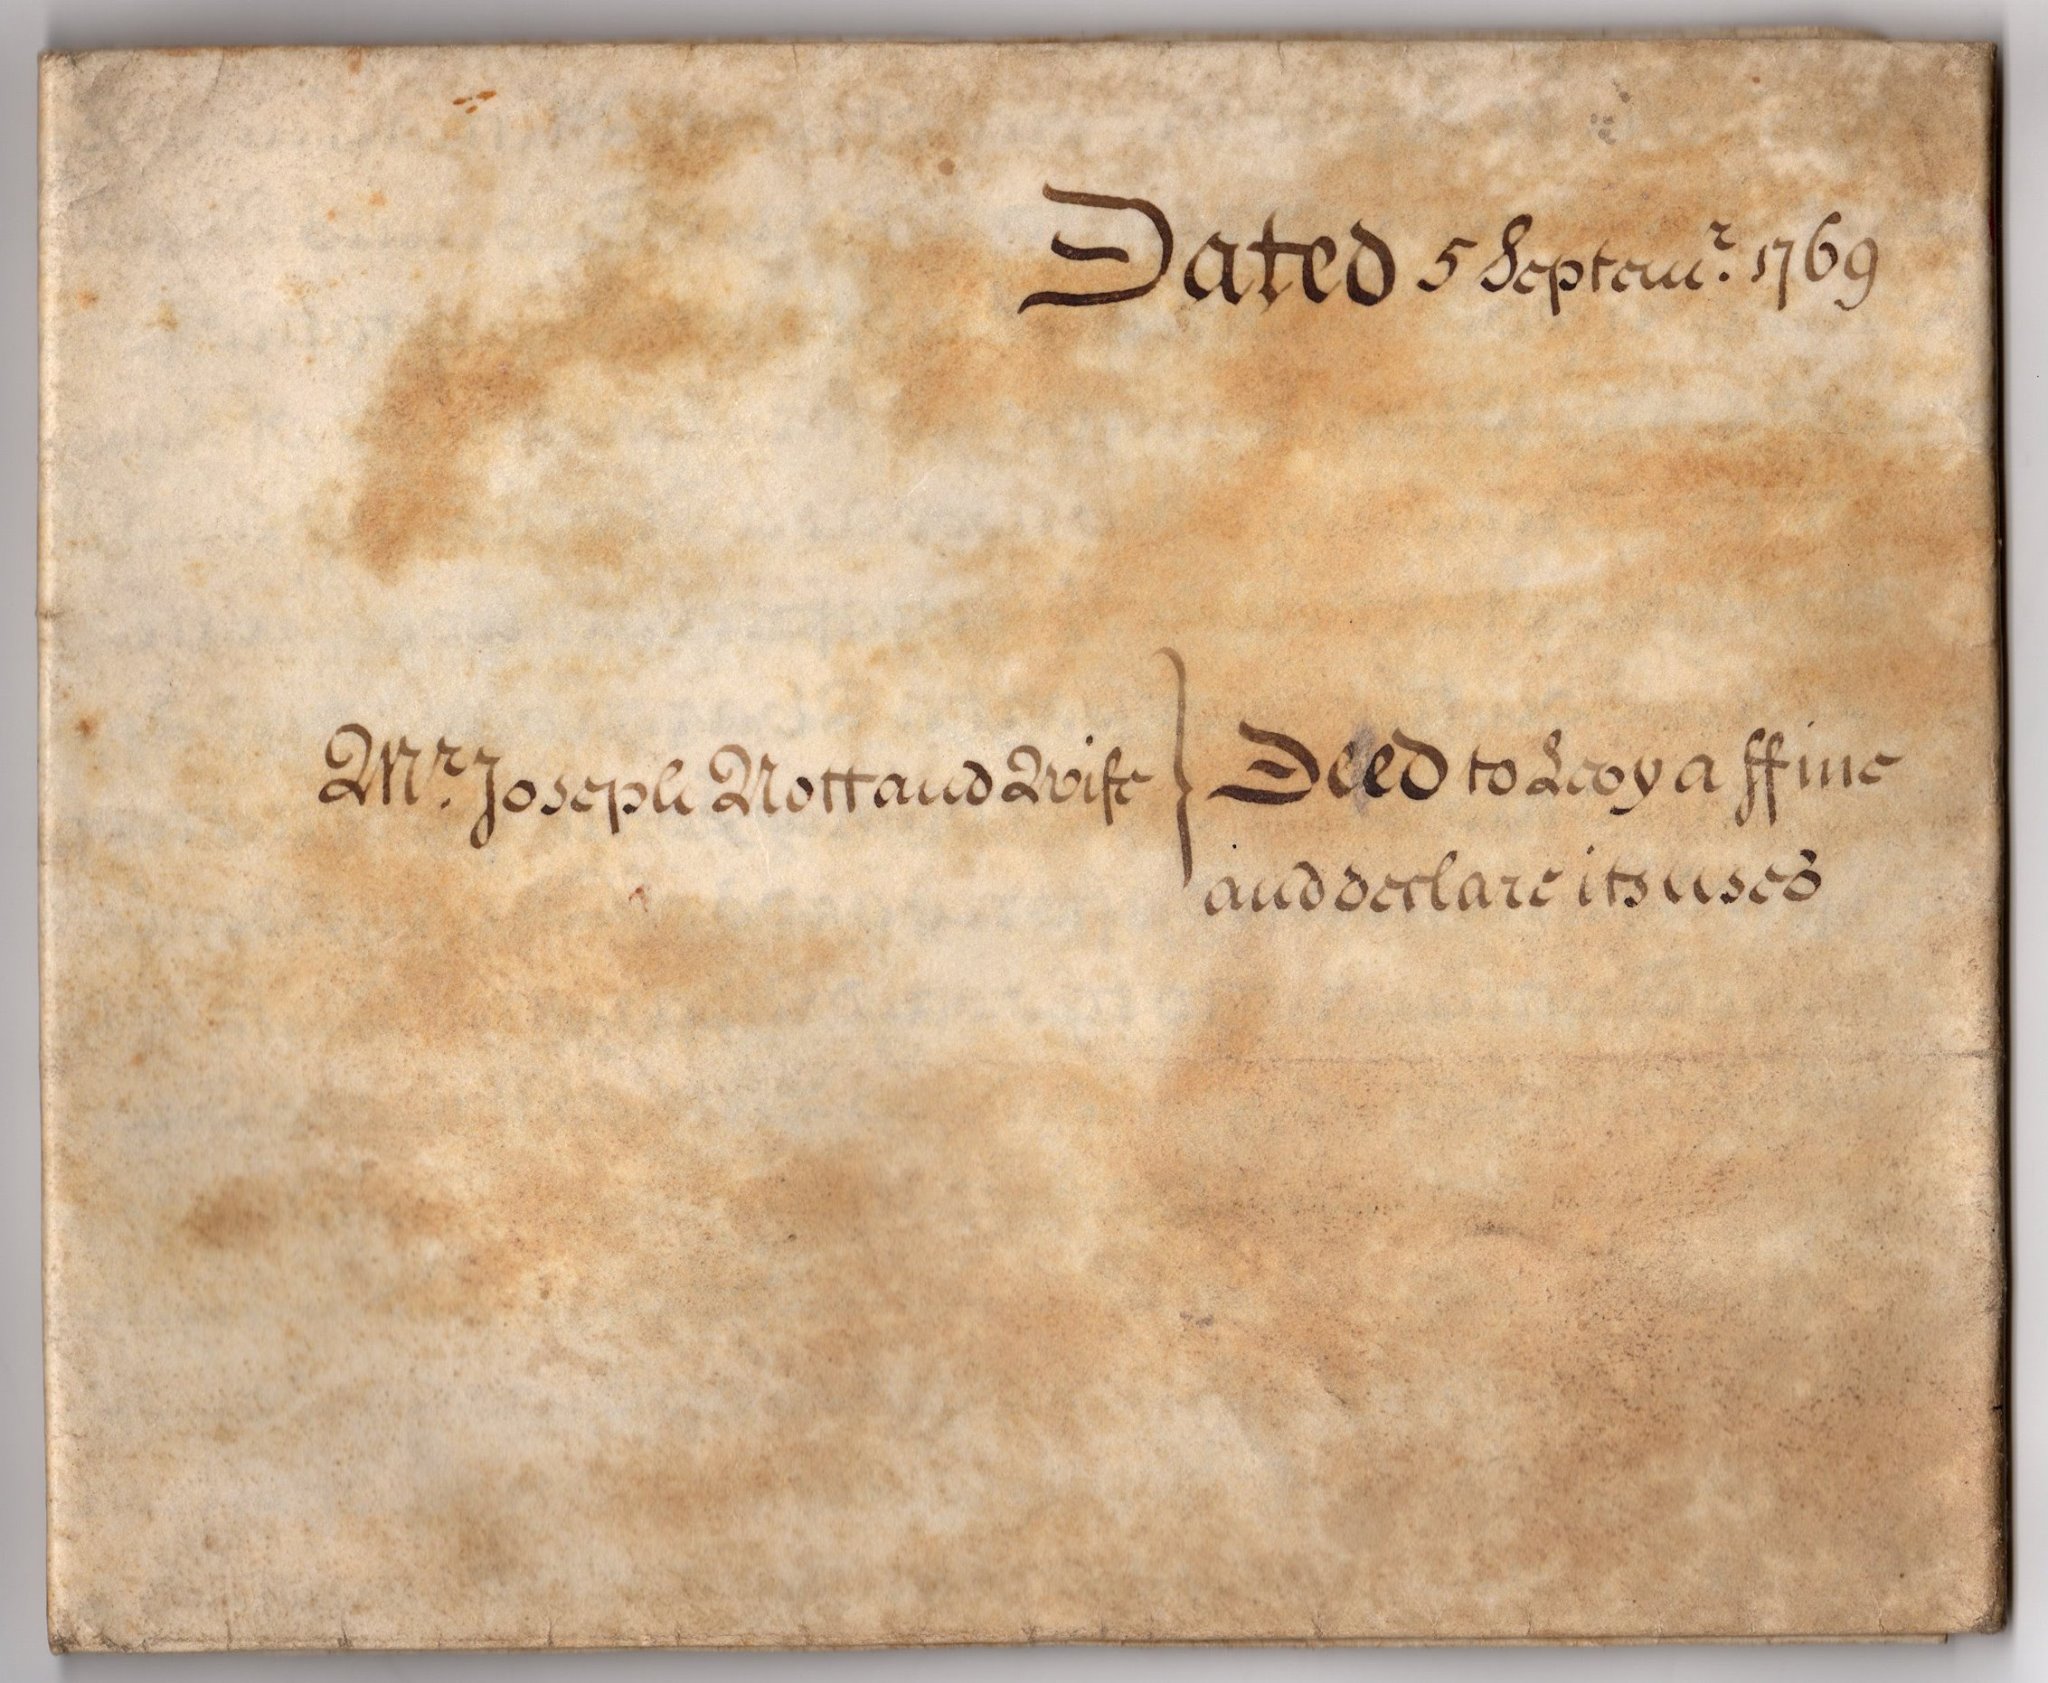 Dated 5 Septem.r 1769
Mr. Joseph Nott and Wife } Deed to Levy a ffine
and declare its uses